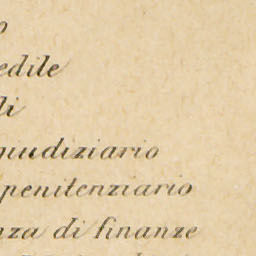 o
edile
li
giudiziario
penitenziario
nza di finanze